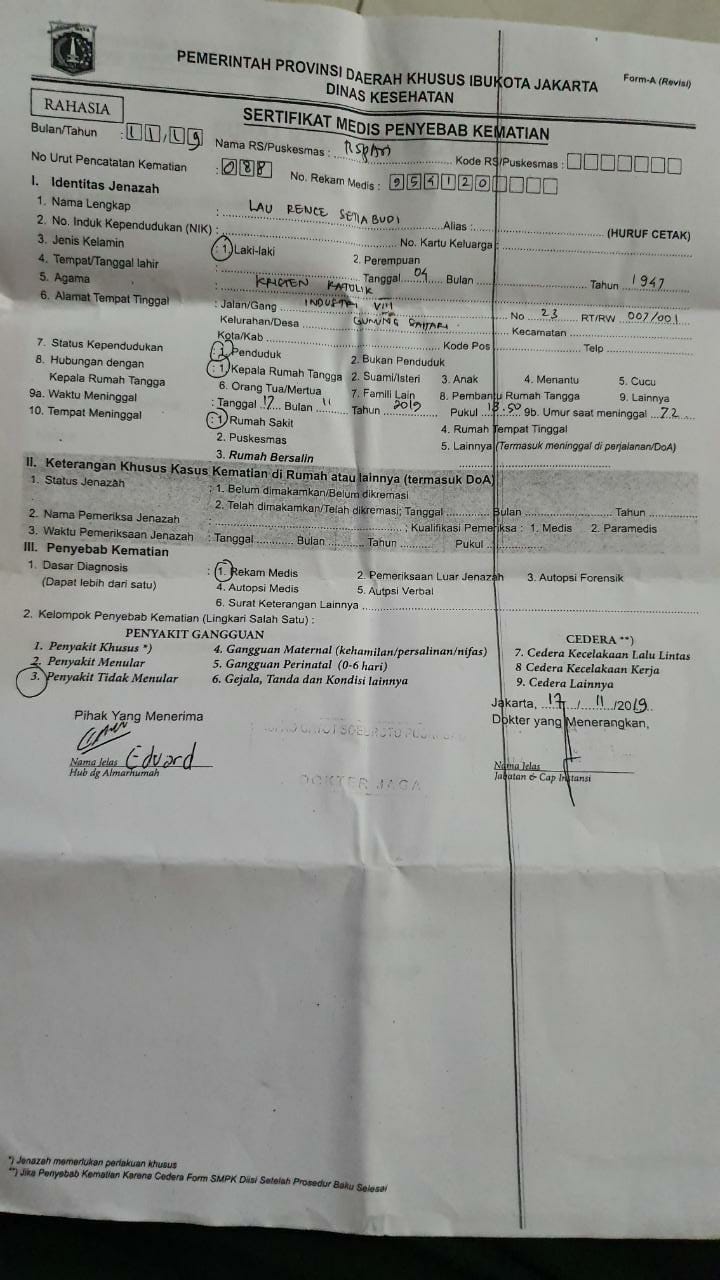 PEMERINTAH PROVINSI DAERAH KHUSUS IBUKOTA JAKARTA
Form-A (Revisi)
DINAS KESEHATAN
RAHASIA
SERTIFIKAT MEDIS PENYEBAB KEMATIAN
Bulan/Tahun : 11/19 Nama RS/Puskesmas : RSPAD Kode RS/Puskesmas :
No Urut Pencatatan Kematian : 088 No. Rekam Medis : 954120
I. Identitas Jenazah
1. Nama Lengkap : LAU RENCE SETIABUDI Alias : (HURUF CETAK)
2. No. Induk Kependudukan (NIK) : No. Kartu Keluarga :
3. Jenis Kelamin : 1. Laki-laki 2. Perempuan
4. Tempat/Tanggal lahir : Tanggal 04 Bulan Tahun 1947
5. Agama : KRISTEN KATOLIK
6. Alamat Tempat Tinggal : Jalan/Gang INDUSTRI VIII No 23 RT/RW 007/001
Kelurahan/Desa GUNUNG SAHARI Kecamatan
Kota/Kab Kode Pos Telp
7. Status Kependudukan : 1. Penduduk 2. Bukan Penduduk
8. Hubungan dengan Kepala Rumah Tangga : 1. Kepala Rumah Tangga 2. Suami/Isteri 3. Anak 4. Menantu 5. Cucu
6. Orang Tua/Mertua 7. Famili Lain 8. Pembantu Rumah Tangga 9. Lainnya
9a. Waktu Meninggal : Tanggal 17 Bulan 11 Tahun 2019 Pukul 13.50 9b. Umur saat meninggal 72
10. Tempat Meninggal : 1. Rumah Sakit 4. Rumah Tempat Tinggal
2. Puskesmas 5. Lainnya (Termasuk meninggal di perjalanan/DoA)
3. Rumah Bersalin
II. Keterangan Khusus Kasus Kematian di Rumah atau lainnya (termasuk DoA)
1. Status Jenazah : 1. Belum dimakamkan/Belum dikremasi
2. Telah dimakamkan/Telah dikremasi; Tanggal Bulan Tahun
2. Nama Pemeriksa Jenazah : ; Kualifikasi Pemeriksa : 1. Medis 2. Paramedis
3. Waktu Pemeriksaan Jenazah : Tanggal Bulan Tahun Pukul
III. Penyebab Kematian
1. Dasar Diagnosis : 1. Rekam Medis 2. Pemeriksaan Luar Jenazah 3. Autopsi Forensik
(Dapat lebih dari satu) 4. Autopsi Medis 5. Autpsi Verbal
6. Surat Keterangan Lainnya
2. Kelompok Penyebab Kematian (Lingkari Salah Satu) :
PENYAKIT GANGGUAN CEDERA **)
1. Penyakit Khusus *) 4. Gangguan Maternal (kehamilan/persalinan/nifas) 7. Cedera Kecelakaan Lalu Lintas
2. Penyakit Menular 5. Gangguan Perinatal (0-6 hari) 8 Cedera Kecelakaan Kerja
3. Penyakit Tidak Menular 6. Gejala, Tanda dan Kondisi lainnya 9. Cedera Lainnya
Jakarta, 17/11/2019
Pihak Yang Menerima Dokter yang Menerangkan,
DOKTER JAGA
Nama Jelas Eduard Nama Jelas
Hub dg Almarhumah Jabatan & Cap Instansi
*) Jenazah memerlukan perlakuan khusus
**) Jika Penyebab Kematian Karena Cedera Form SMPK Diisi Setelah Prosedur Baku Selesai